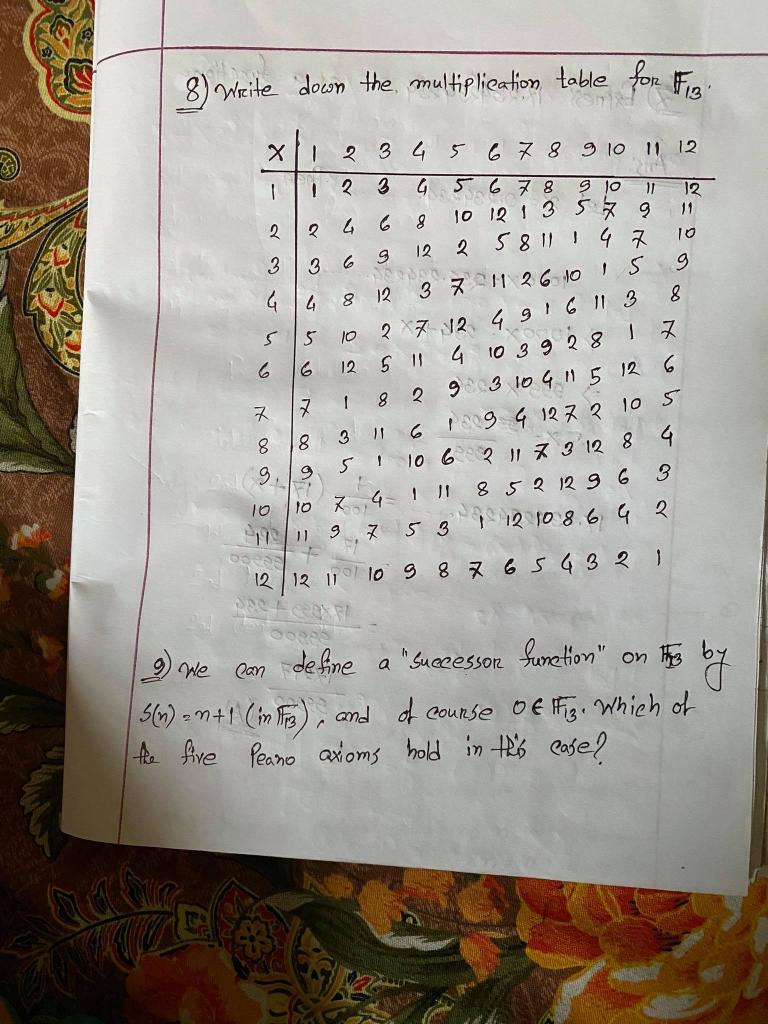 8) Write down the multiplication table for F13.
X 1 2 3 4 5 6 7 8 9 10 11 12
1 1 2 3 4 5 6 7 8 9 10 11 12
2 2 4 6 8 10 12 1 3 5 7 9 11
3 3 6 9 12 2 5 8 11 1 4 7 10
4 4 8 12 3 7 11 2 6 10 1 5 9
5 5 10 2 7 12 4 9 1 6 11 3 8
6 6 12 5 11 4 10 3 9 2 8 1 7
7 7 1 8 2 9 3 10 4 11 5 12 6
8 8 3 11 6 1 9 4 12 7 2 10 5
9 9 5 1 10 6 2 11 7 3 12 8 4
10 10 7 4 1 11 8 5 2 12 9 6 3
11 11 9 7 5 3 1 12 10 8 6 4 2
12 12 11 10 9 8 7 6 5 4 3 2 1
9) We can define a "successor function" on F13 by
S(n) = n+1 (in F13), and of course 0 ∈ F13. Which of
the five Peano axioms hold in this case?